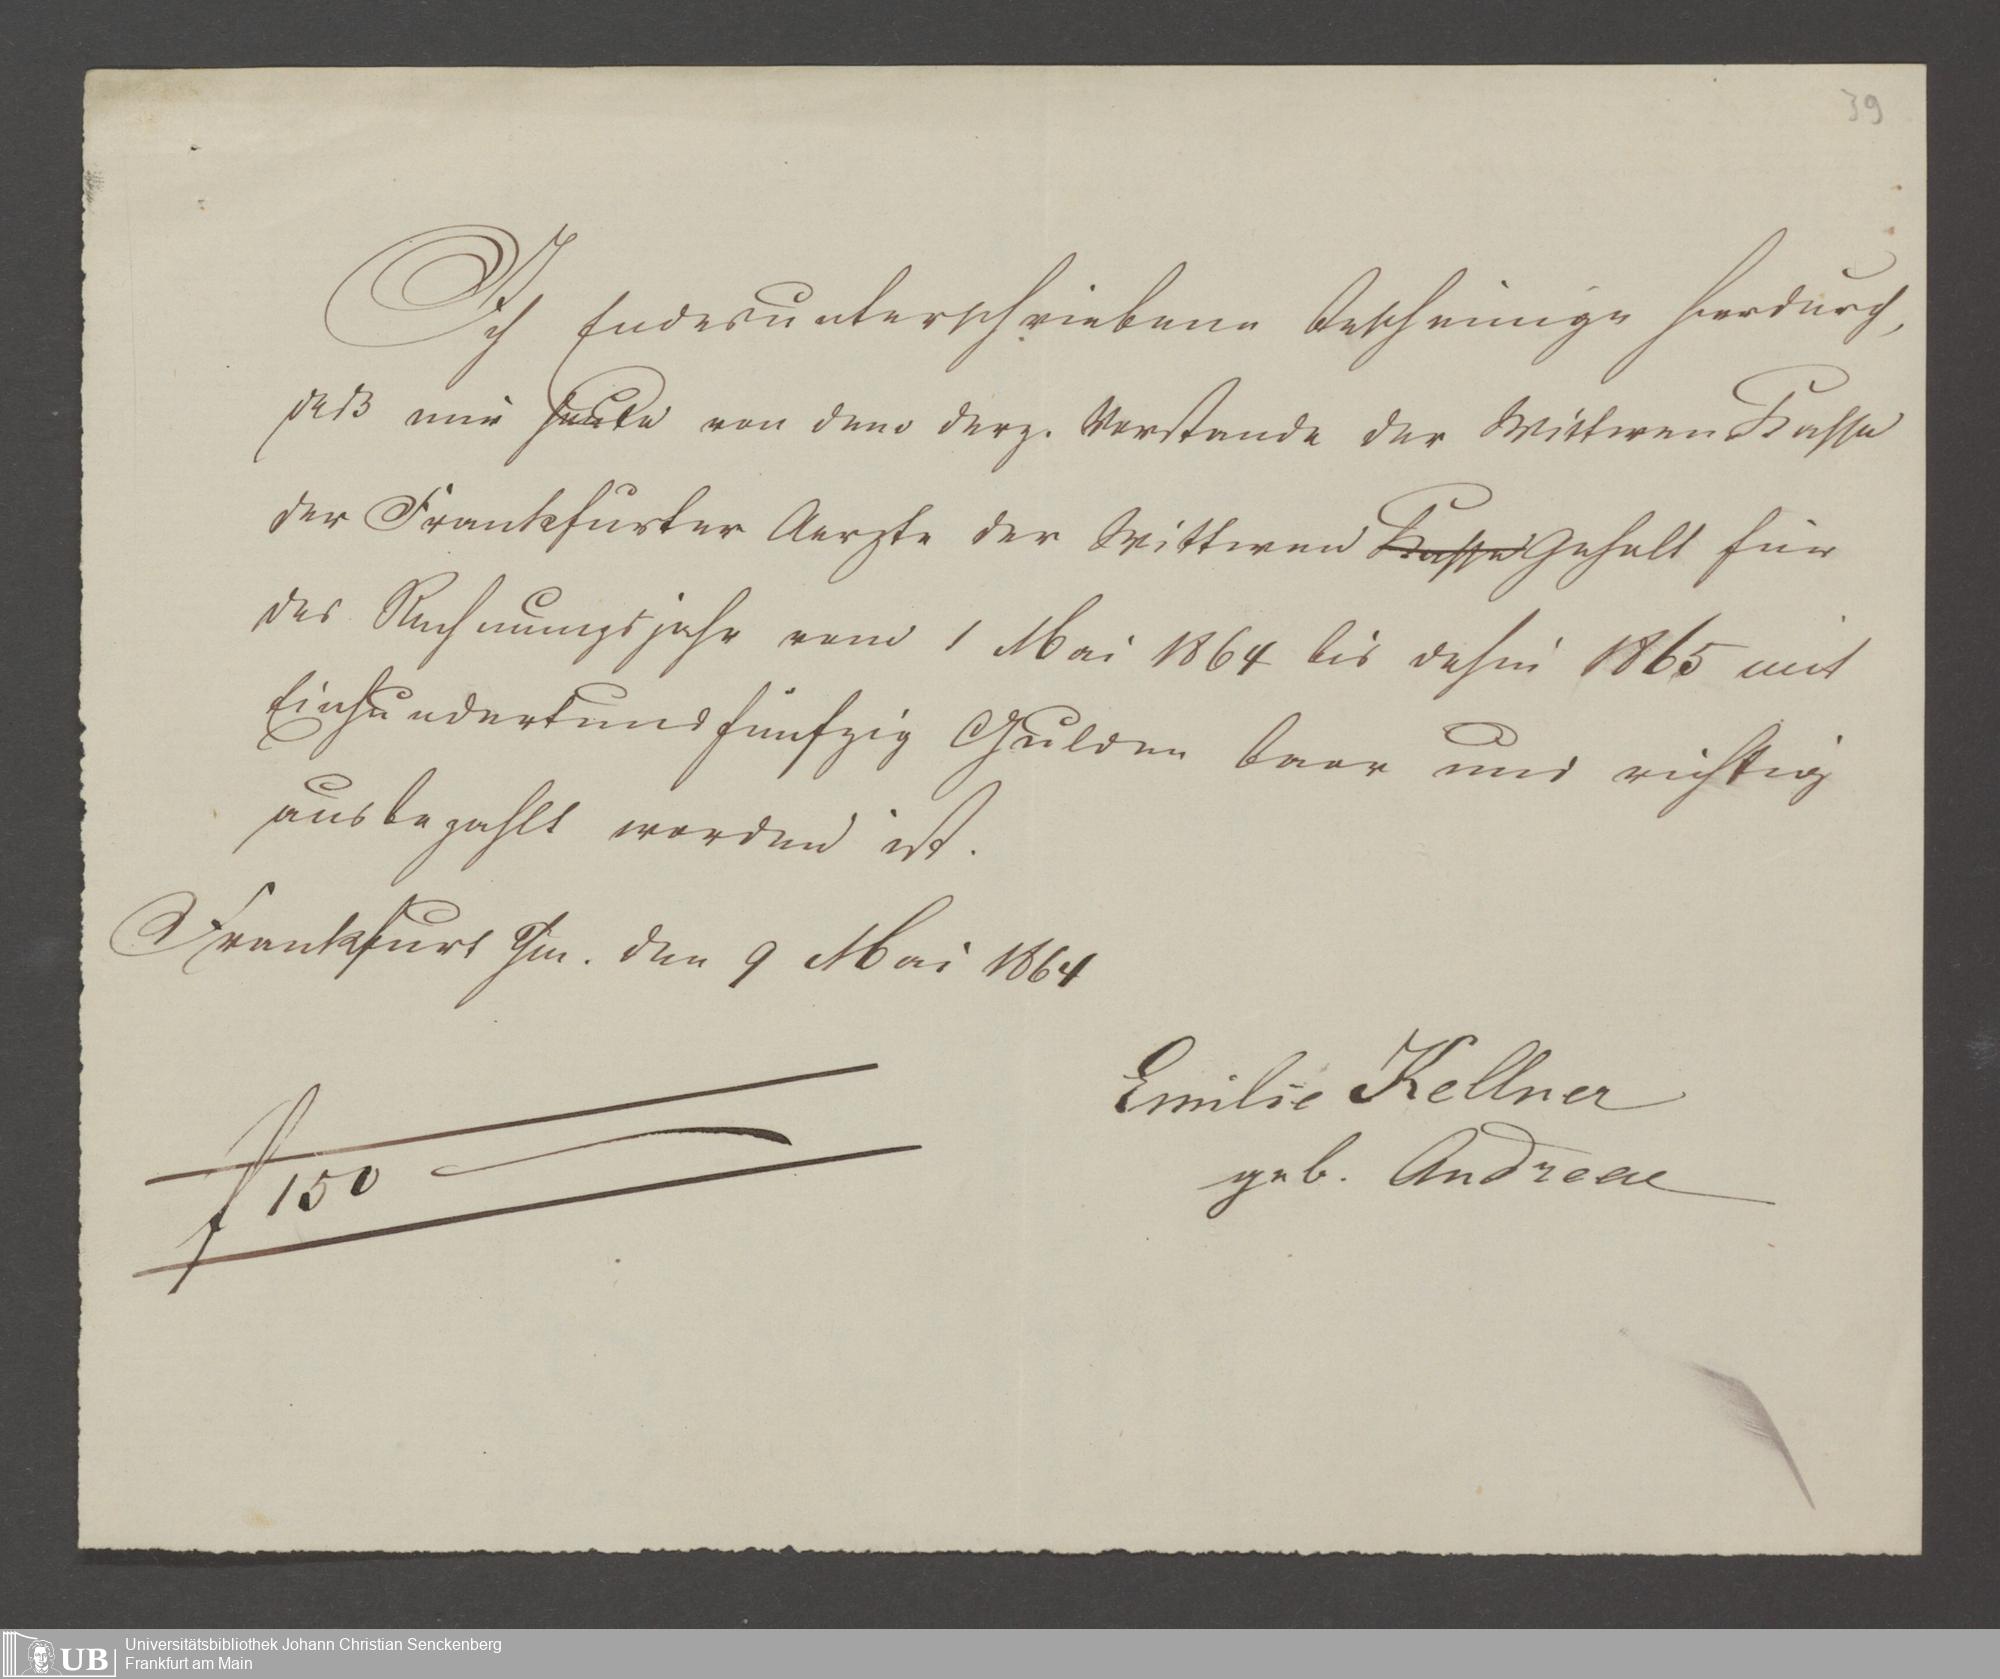 39
Ich Endesunterschriebene bescheinige hierdurch,
daß mir heute von dem derz. Vorstande der Wittwen Kasse
der Frankfurter Aerzte der Wittwen Kasse Gehalt für
das Rechnungsjahr vom 1 Mai 1864 bis dahin 1865 mit
Einhundertundfünfzig Gulden baar und richtig
ausbezahlt worden ist.
Frankfurt a/m. den 9 Mai 1864
Emilie Kellner
geb. Andreae
f 150
UB
Universitätsbibliothek Johann Christian Senckenberg
Frankfurt am Main